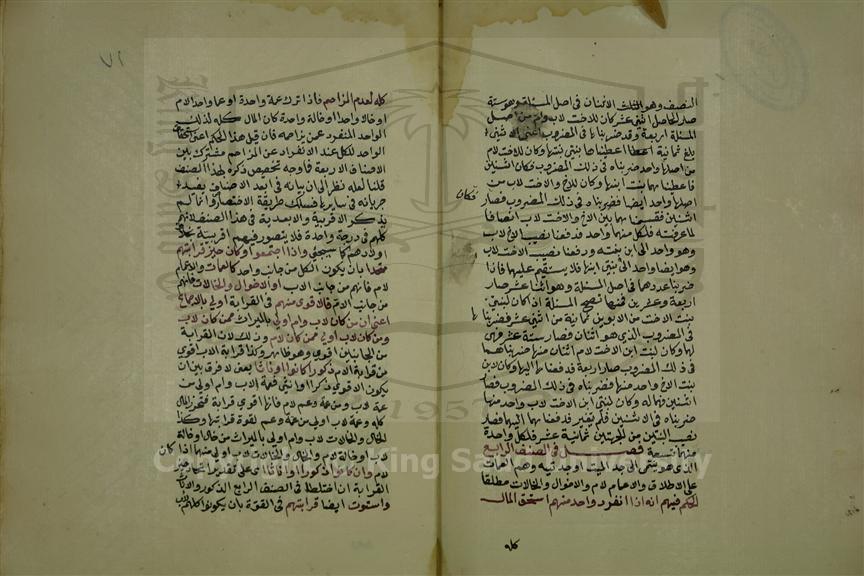 النصف وهو الثلث الاثنان في اصل المسئلة وهو ستة
صار الحاصل اثني عشر كان للاخت لاب وام من اصل
المسئلة اربعة وقد ضربناها في المضروب اعني الاثنين
بلغ ثمانية اعطيناها بنتي بنتها وكان للاخت لام
من اصلها واحد ضربناه في ذلك المضروب فكان اثنين
فاعطيناهما بنت ابنها وكان للاخ والاخت لاب من
اصلها واحد ايضا فضربناه في ذلك المضروب فصار
اثنين فقسمناهما بين الاخ والاخت لاب انصافا
لما عرفته فلكل منهما واحد فدفعنا نصيب الاخ لاب
وهو واحد الى ابن بنته ودفعنا نصيب الاخت لاب
وهو ايضا واحد الى بنتي ابنها فلا يستقيم عليهما فاذا
ضربنا عددهما في اصل المسئلة وهو اثنا عشر صار
اربعة وعشرين فمنها تصح المسئلة اذ كان لبنتي
بنت الاخت من الابوين ثمانية من اثني عشر فضربناها
في المضروب الذي هو اثنان فصار ستة عشر فهي
لهما وكان لبنت ابن الاخت لام اثنان منها ضربناهما
في ذلك المضروب صار اربعة فدفعناها اليها وكان لابن
بنت الاخ واحد منها فضربناه في ذلك المضروب فصار
اثنين فهما له وكان لبنتي ابن الاخت لاب واحد منها
ضربناه في الاثنين فلم يتغير فدفعناهما اليهما فصار
نصيب البنتين من الجهتين ثمانية عشر فلكل واحدة
منهما تسعة فصل في الصنف الرابع
الذي هو ينتمي الى جد الميت او جدتيه وهم العمات
على الاطلاق والاعمام لام والاخوال والخالات مطلقا
الحكم فيهم انه اذا انفرد واحد منهم استحق المال
كله
فكان
٧٢
كله لعدم المزاحم فاذا ترك عمة واحدة او عما واحدا لام
او خالا واحدا او خالة واحدة كان المال كله لذلك
الواحد المنفرد عمن يزاحمه فان قيل هذا الحكم اعني استحقاق
الواحد للكل عند الانفراد عن المزاحم مشترك بين
الاصناف الاربعة فما وجه تخصيص ذكره بهذا الصنف
قلنا لعله نظر الى ان بيانه في ابعد الاصناف يفيد
جريانه في سايرها فسلك طريقة الاختصار وانما لم
يذكر الاقربية والابعدية في هذا الصنف لانهم
كلهم في درجة واحدة فلا يتصور فيهم اقربية بخلاف
اولادهم كما سيجيء واذا اجتمعوا وكان حيز قرابتهم
متحدا بان يكون الكل من جانب واحد كالعمات والاعمام
لام فانهم من جانب الاب او الاخوال والخالات فانهم
من جانب الام فالاقوى منهم في القرابة اولى بالاجماع
اعني ان من كان لاب وام اولى بالميراث ممن كان لاب
ومن كان لاب اولى ممن كان لام وذلك لان القرابة
من الجانبين اقوى وهو ظاهر وكذا قرابة الاب اقوى
من قرابة الام ذكورا كانوا او اناثا يعني لا فرق بين ان
يكون الاقوى ذكرا او انثى فعمة لاب وام اولى من
عمة لاب ومن عمة وعم لام فانها اقوى قرابة فتحرز المال
كله وعمة لاب اولى من عمة وعم لقوة قرابتها وكذا
الخال والخالات لاب وام اولى بالميراث من خال او خالة
لاب او خالة لام والخال والخالات لاب اولى منهما اذا كان
لام وان كانوا ذكورا واناثا اي على تقدير اتحاد حيز
القرابة ان اختلط في الصنف الرابع الذكور والاناث
واستوت ايضا قرابتهم في القوة بان يكونوا كلهم لاب